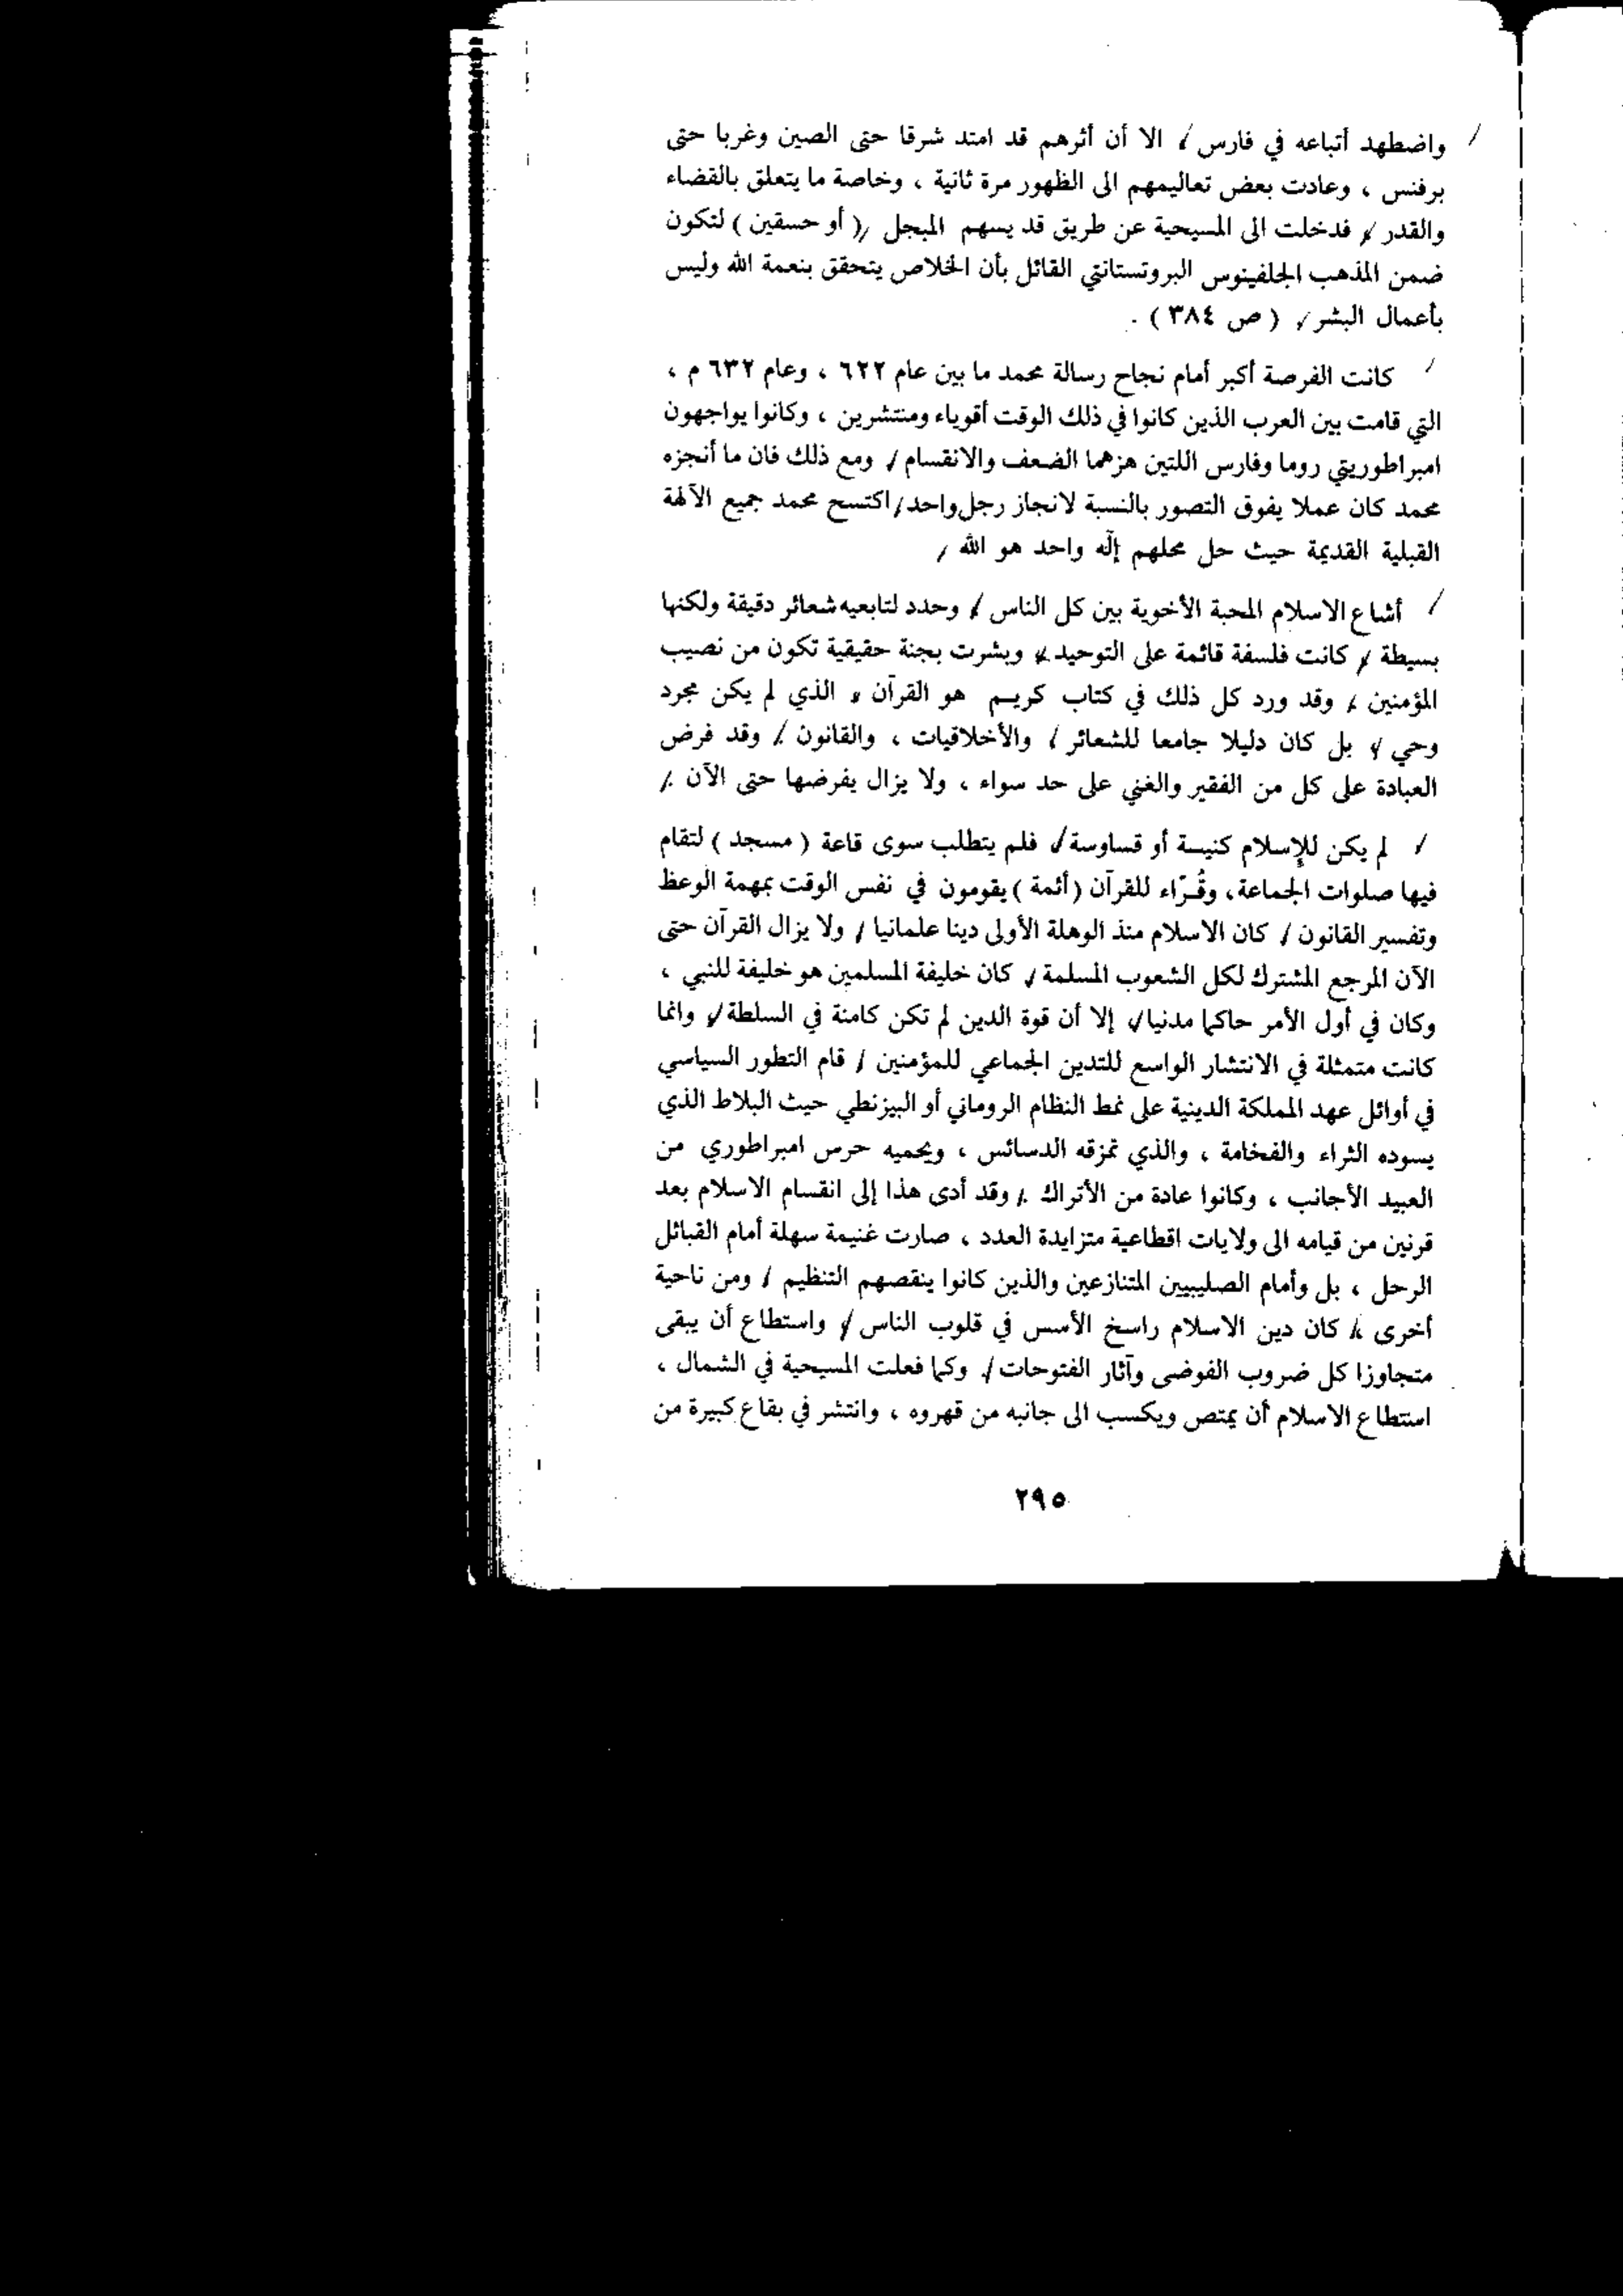 واضطهد أتباعه في فارس / الا أن أثرهم قد امتد شرقا حتى الصين وغربا حتى
برفنس ، وعادت بعض تعاليمهم الى الظهور مرة ثانية ، وخاصة ما يتعلق بالقضاء
والقدر / فدخلت الى المسيحية عن طريق قديسهم المبجل / ( أو حسقين ) لتكون
ضمن المذهب الجلفينوس البروتستانتي القائل بأن الخلاص يتحقق بنعمة الله وليس
بأعمال البشر / ( ص ٣٨٤ ) .
كانت الفرصة أكبر أمام نجاح رسالة محمد ما بين عام ٦٢٢ ، وعام ٦٣٢ م ،
التي قامت بين العرب الذين كانوا في ذلك الوقت أقوياء ومنتشرين ، وكانوا يواجهون
امبراطوريتي روما وفارس اللتين هزهما الضعف والانقسام / ومع ذلك فان ما أنجزه
محمد كان عملا يفوق التصور بالنسبة لانجاز رجل واحد / اكتسح محمد جميع الآلهة
القبلية القديمة حيث حل محلهم إله واحد هو الله /
أشاع الاسلام المحبة الأخوية بين كل الناس / وحدد لتابعيه شعائر دقيقة ولكنها
بسيطة / كانت فلسفة قائمة على التوحيد / وبشرت بجنة حقيقية تكون من نصيب
المؤمنين / وقد ورد كل ذلك في كتاب كريم هو القرآن / الذي لم يكن مجرد
وحي / بل كان دليلا جامعا للشعائر / والأخلاقيات ، والقانون / وقد فرض
العبادة على كل من الفقير والغني على حد سواء ، ولا يزال يفرضها حتى الآن /
/ لم يكن للإسلام كنيسة أو قساوسة / فلم يتطلب سوى قاعة ( مسجد ) لتقام
فيها صلوات الجماعة ، وقُرّاء للقرآن ( أئمة ) يقومون في نفس الوقت بمهمة الوعظ
وتفسير القانون / كان الاسلام منذ الوهلة الأولى دينا علمانيا / ولا يزال القرآن حتى
الآن المرجع المشترك لكل الشعوب المسلمة / كان خليفة المسلمين هو خليفة للنبي ،
وكان في أول الأمر حاكما مدنيا / إلا أن قوة الدين لم تكن كامنة في السلطة / وانما
كانت متمثلة في الانتشار الواسع للتدين الجماعي للمؤمنين / قام التطور السياسي
في أوائل عهد المملكة الدينية على نمط النظام الروماني أو البيزنطي حيث البلاط الذي
يسوده الثراء والفخامة ، والذي تمزقه الدسائس ، ويحميه حرس امبراطوري من
العبيد الأجانب ، وكانوا عادة من الأتراك / وقد أدى هذا إلى انقسام الاسلام بعد
قرنين من قيامه الى ولايات اقطاعية متزايدة العدد ، صارت غنيمة سهلة أمام القبائل
الرحل ، بل وأمام الصليبيين المتنازعين والذين كانوا ينقصهم التنظيم / ومن ناحية
أخرى / كان دين الاسلام راسخ الأسس في قلوب الناس / واستطاع أن يبقى
متجاوزا كل ضروب الفوضى وآثار الفتوحات / وكما فعلت المسيحية في الشمال ،
استطاع الاسلام أن يمتص ويكسب الى جانبه من قهروه ، وانتشر في بقاع كبيرة من
٢٩٥